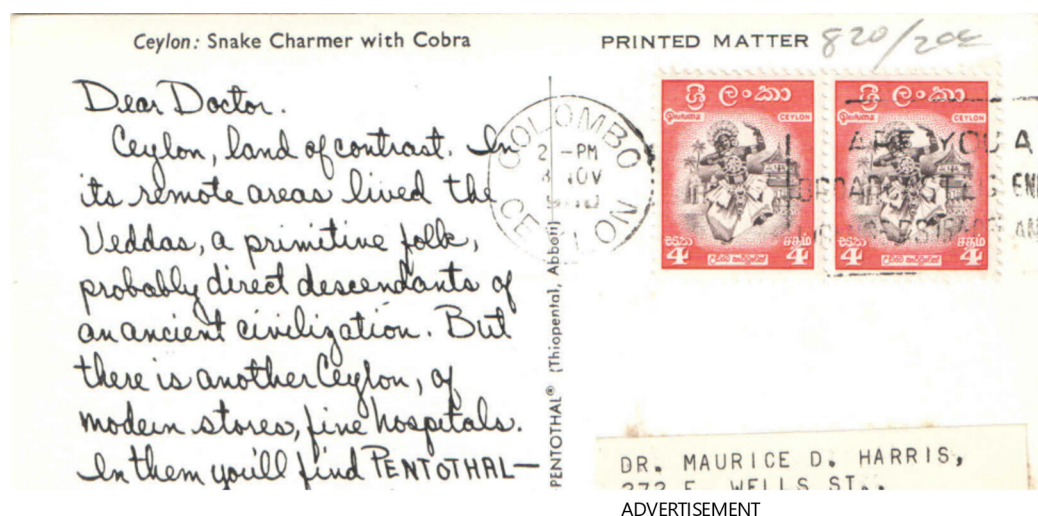 Ceylon: Snake Charmer with Cobra
PRINTED MATTER
820/20¢
Dear Doctor.
Ceylon, land of contrast. In
its remote areas lived the
Veddas, a primitive folk,
probably direct descendants of
an ancient civilization. But
there is another Ceylon, of
modern stores, fine hospitals.
In them you'll find PENTOTHAL—
PENTOTHAL® (Thiopental, Abbott)
COLOMBO
2 -PM
8 NOV
CEYLON
ශ්‍රී ලංකා
இலங்கை CEYLON
සත சதம்
4 4
ශ්‍රී ලංකා
இலங்கை CEYLON
සත சதம்
4 4
ARE YOU A
DR. MAURICE D. HARRIS,
272 E. WELLS ST.,
ADVERTISEMENT